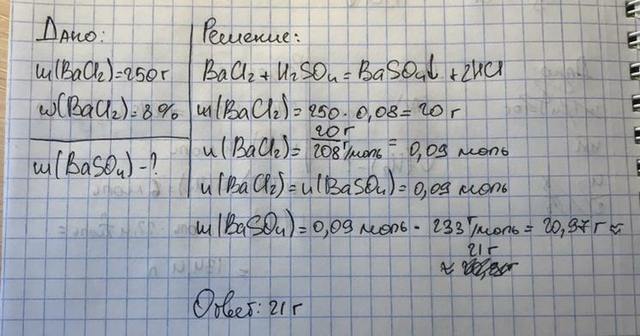 Дано:
m(BaCl2)=250г
w(BaCl2)=8%
m(BaSO4)-?
Решение:
BaCl2 + H2SO4 = BaSO4↓ + 2HCl
m(BaCl2)=250·0,08=20 г
n(BaCl2)= 20г/208г/моль = 0,09 моль
n(BaCl2)=n(BaSO4)=0,09 моль
m(BaSO4)=0,09 моль · 233 г/моль = 20,97 г ≈
≈ 21 г
Ответ: 21 г